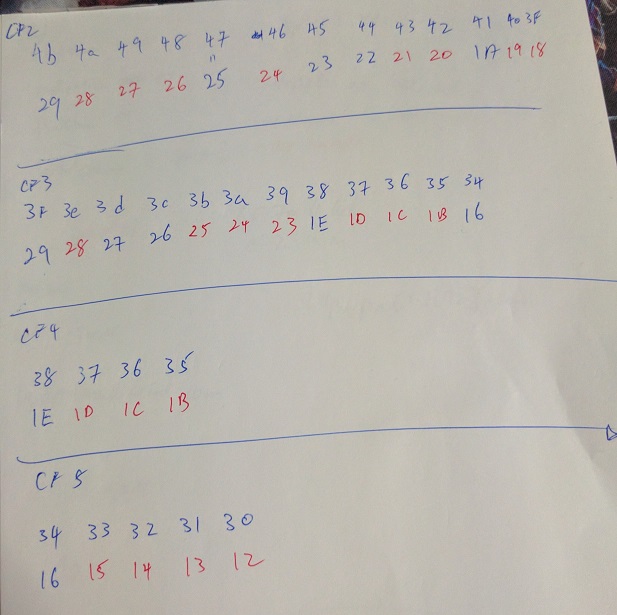 CF2
4b 4a 49 48 47 46 45 44 43 42 41 40 3F
"
29 28 27 26 25 24 23 22 21 20 1A 19 18
CF3
3F 3e 3d 3c 3b 3a 39 38 37 36 35 34
29 28 27 26 25 24 23 1E 1D 1C 1B 16
CF4
38 37 36 35
1E 1D 1C 1B
CF5
34 33 32 31 30
16 15 14 13 12